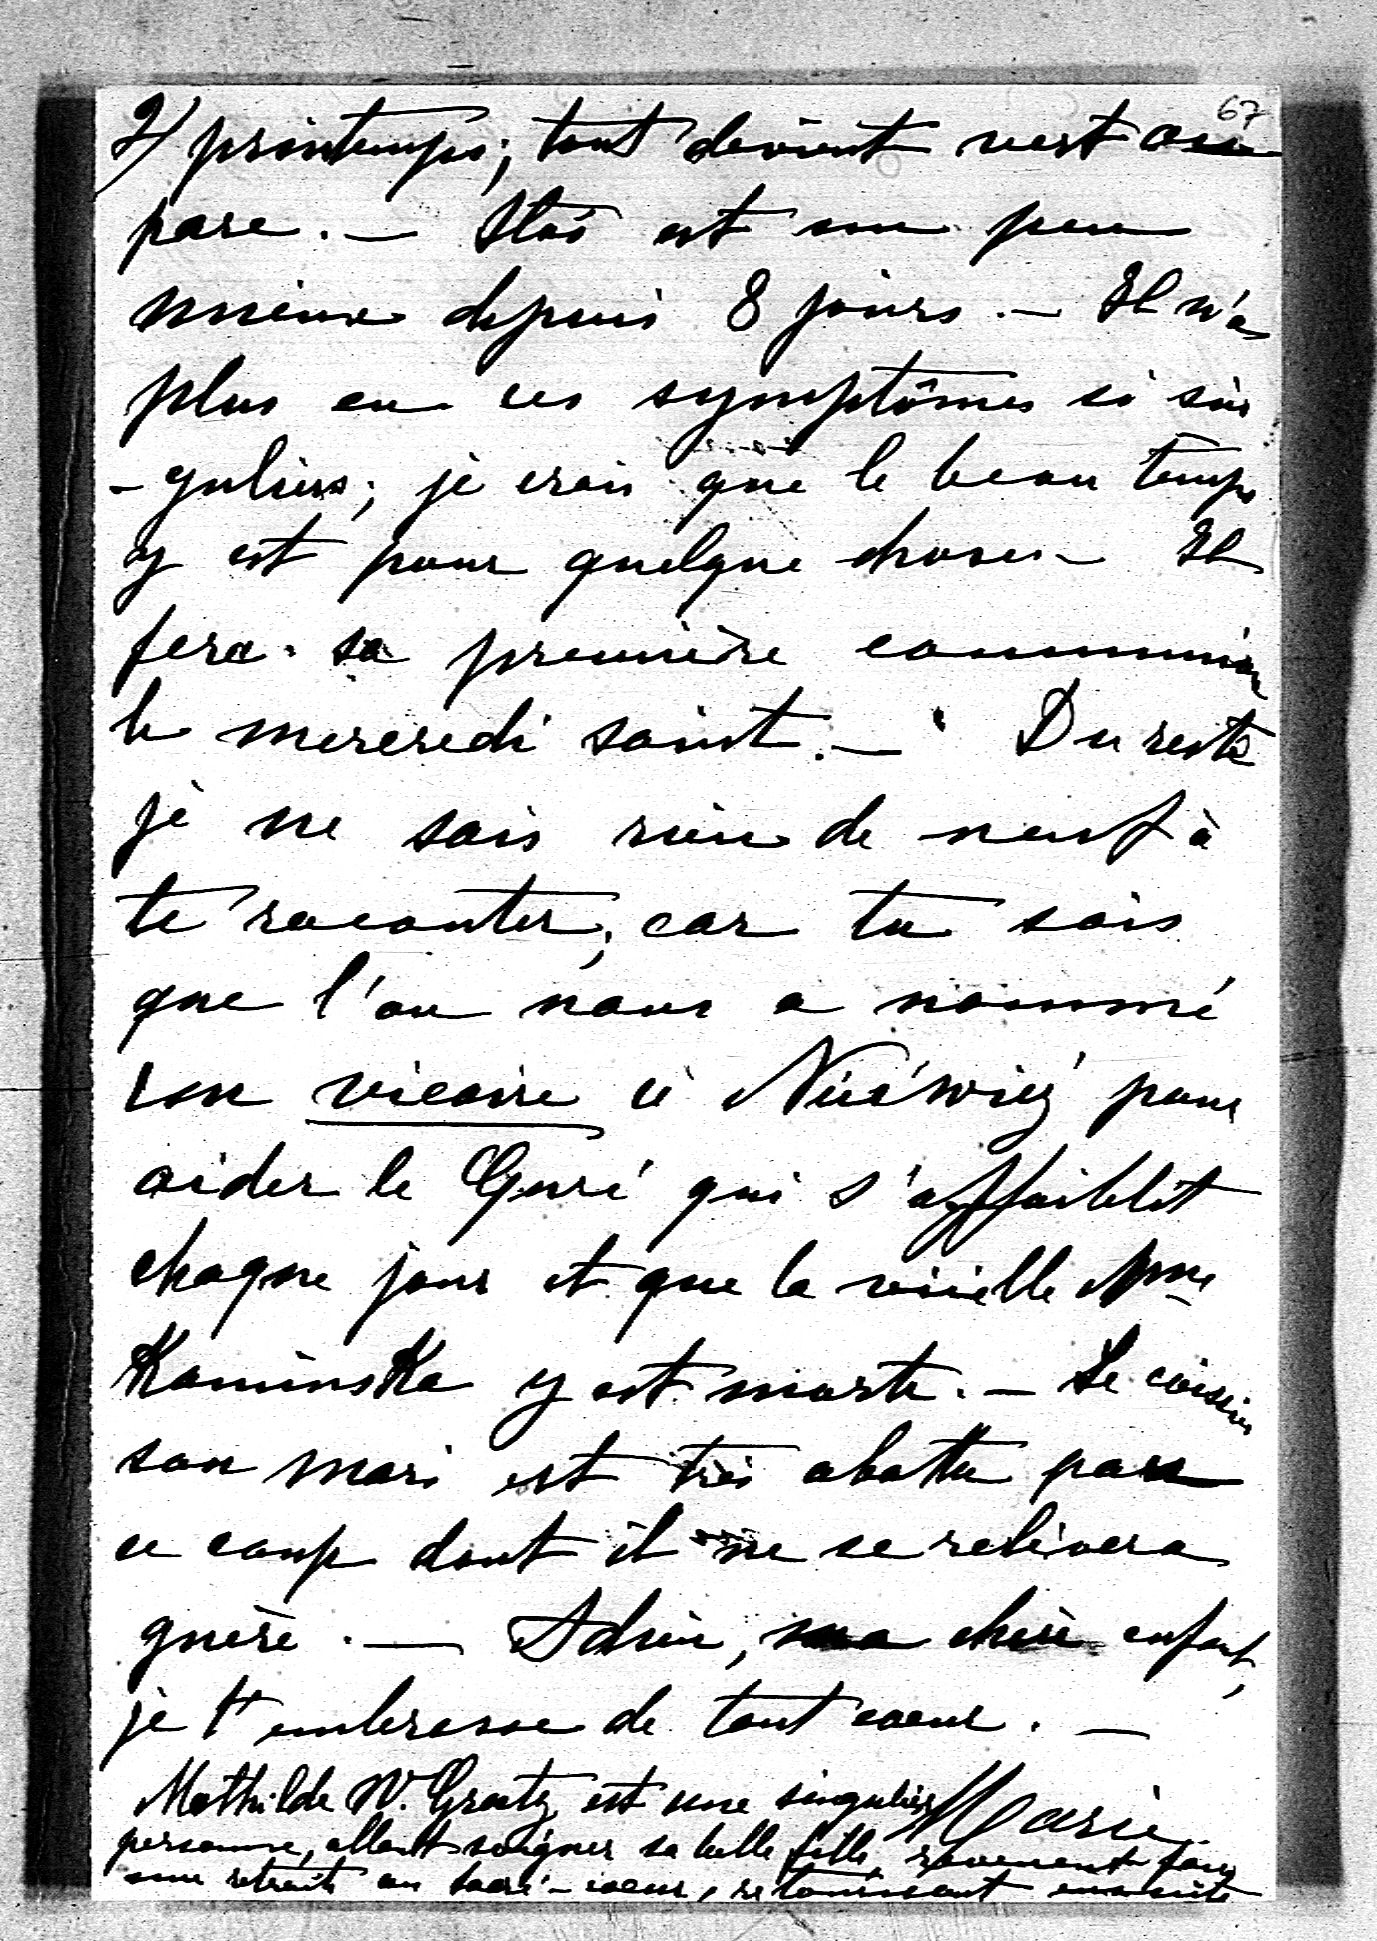 67
2/ printemps; tout devient vert au
parc. — Staś est un peu
mieux depuis 8 jours. — Il n'a
plus eu ces symptômes si sin
-guliers; je crois que le beau temps
y est pour quelque chose. — Il
fera sa première communion
le mercredi saint. — Du reste
je ne sais rien de neuf à
te raconter, car tu sais
que l'on nous a nommé
un vicaire à Nieśwież pour
aider le Curé qui s'affaiblit
chaque jour et que la vieille Mme
Kaminska y est morte. — Le caissier
son mari est très abattu par
ce coup dont il ne se relèvera
guère. — Adieu, ma chère enfant,
je t'embrasse de tout coeur. —
Marie
Mathilde W. Graetz est une singulière
personne, allant soigner sa belle fille, revenant pour
une retraite au Sacré-coeur, retournant ensuite